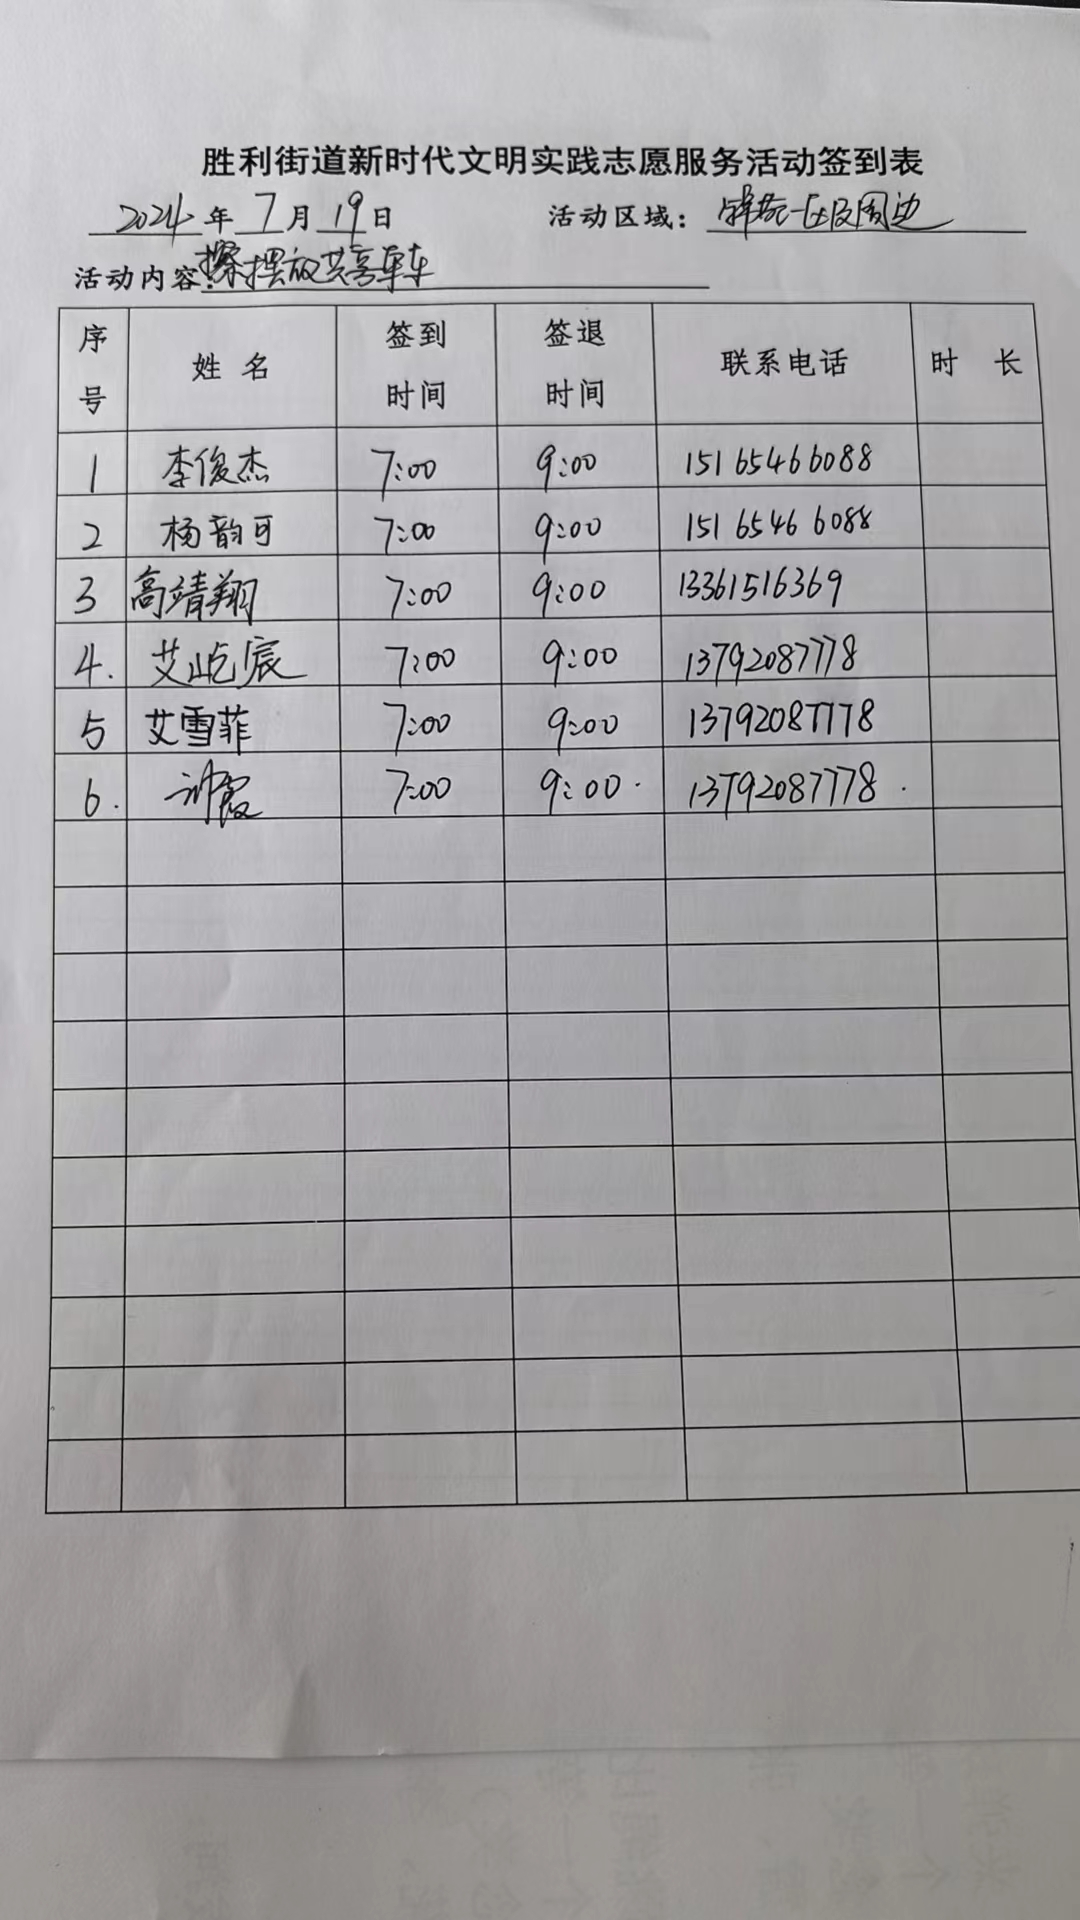 胜利街道新时代文明实践志愿服务活动签到表
2024年 7月 19日 活动区域：锦苑一区及周边
活动内容：擦摆放共享单车
序号 姓名 签到时间 签退时间 联系电话 时长
1 李俊杰 7:00 9:00 15165466088
2 杨韵可 7:00 9:00 15165466088
3 高靖翔 7:00 9:00 13361516369
4. 艾屹宸 7:00 9:00 13792087778
5 艾雪菲 7:00 9:00 13792087778
6. 霞 7:00 9:00. 13792087778.